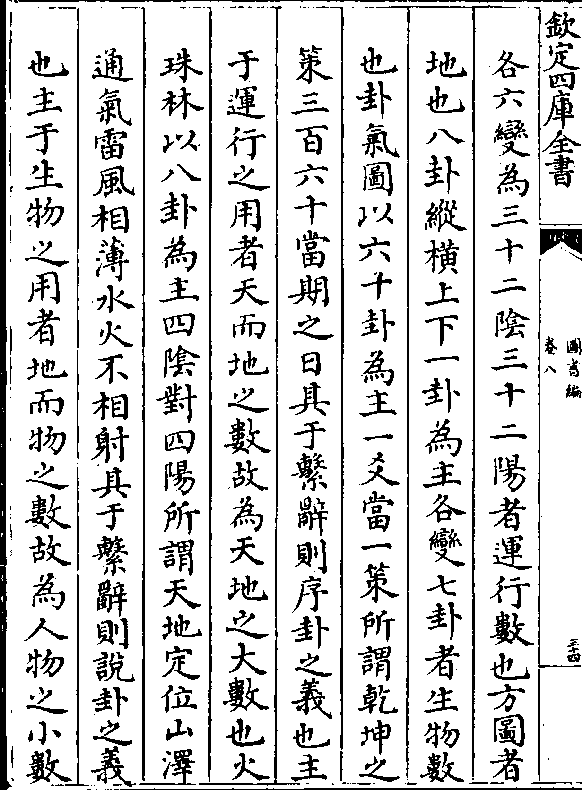 欽定四庫全書
圖書編
卷八
三十四
各六變為三十二陰三十二陽者運行數也方圖者
地也八卦縱橫上下一卦為主各變七卦者生物數
也卦氣圖以六十卦為主一爻當一策所謂乾坤之
策三百六十當期之日具于繫辭則序卦之義也主
于運行之用者天而地之數故為天地之大數也火
珠林以八卦為主四陰對四陽所謂天地定位山澤
通氣雷風相薄水火不相射具于繫辭則說卦之義
也主于生物之用者地而物之數故為人物之小數